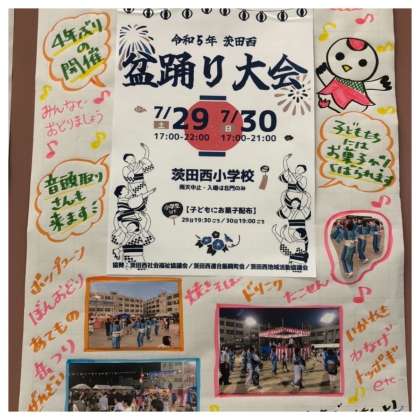 4年ぶりの
開催
みんなで
おどりましょう
音頭取り
さんも
来ます
令和5年 茨田西
盆踊り大会
7/29 7/30
土 日
17:00-22:00 17:00-21:00
茨田西小学校
雨天中止・入場は北門のみ
【子どもにお菓子配布】
29日19:30ごろ/30日19:00ごろ
協賛:茨田西社会福祉協議会/茨田西連合振興町会/茨田西地域活動協議会
子どもたち
には
お菓子が
くばられます
ポップコーン
ぼんおどり
あてもの
金つり
焼きそば
ドリンク
たこせん
いかやき
わなげ
トッポギ
etc.